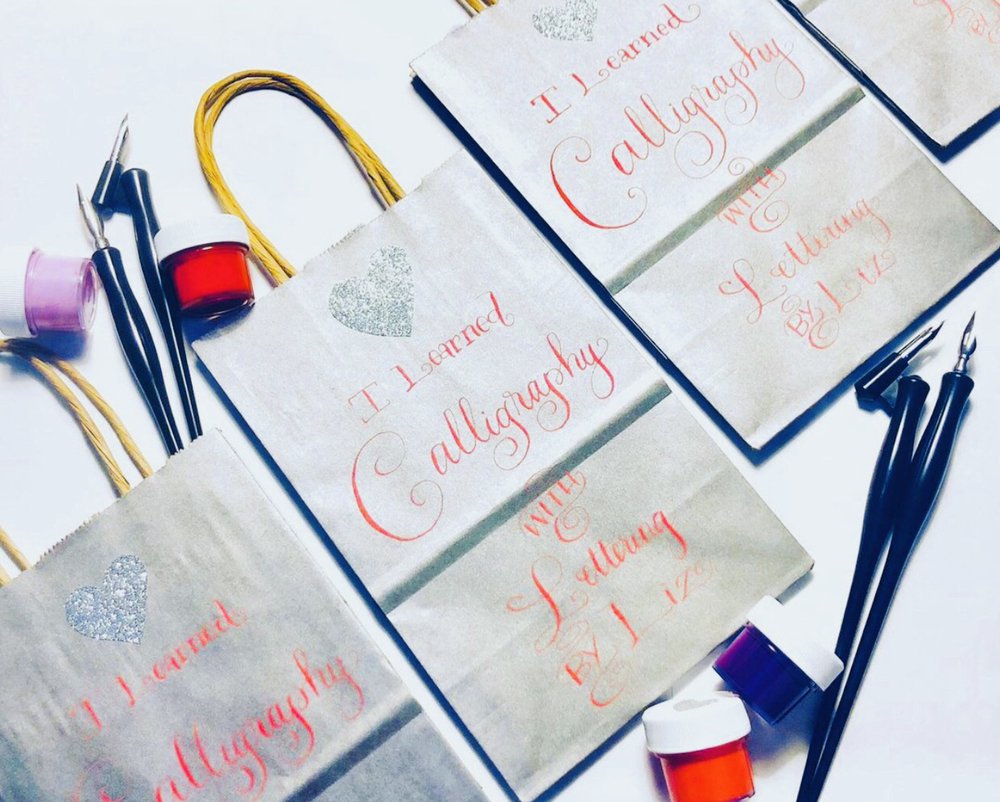 I Learned
Calligraphy
WITH
Lettering
BY Liz
I Learned
Calligraphy
WITH
Lettering
BY Liz
I Learned
Calligraphy